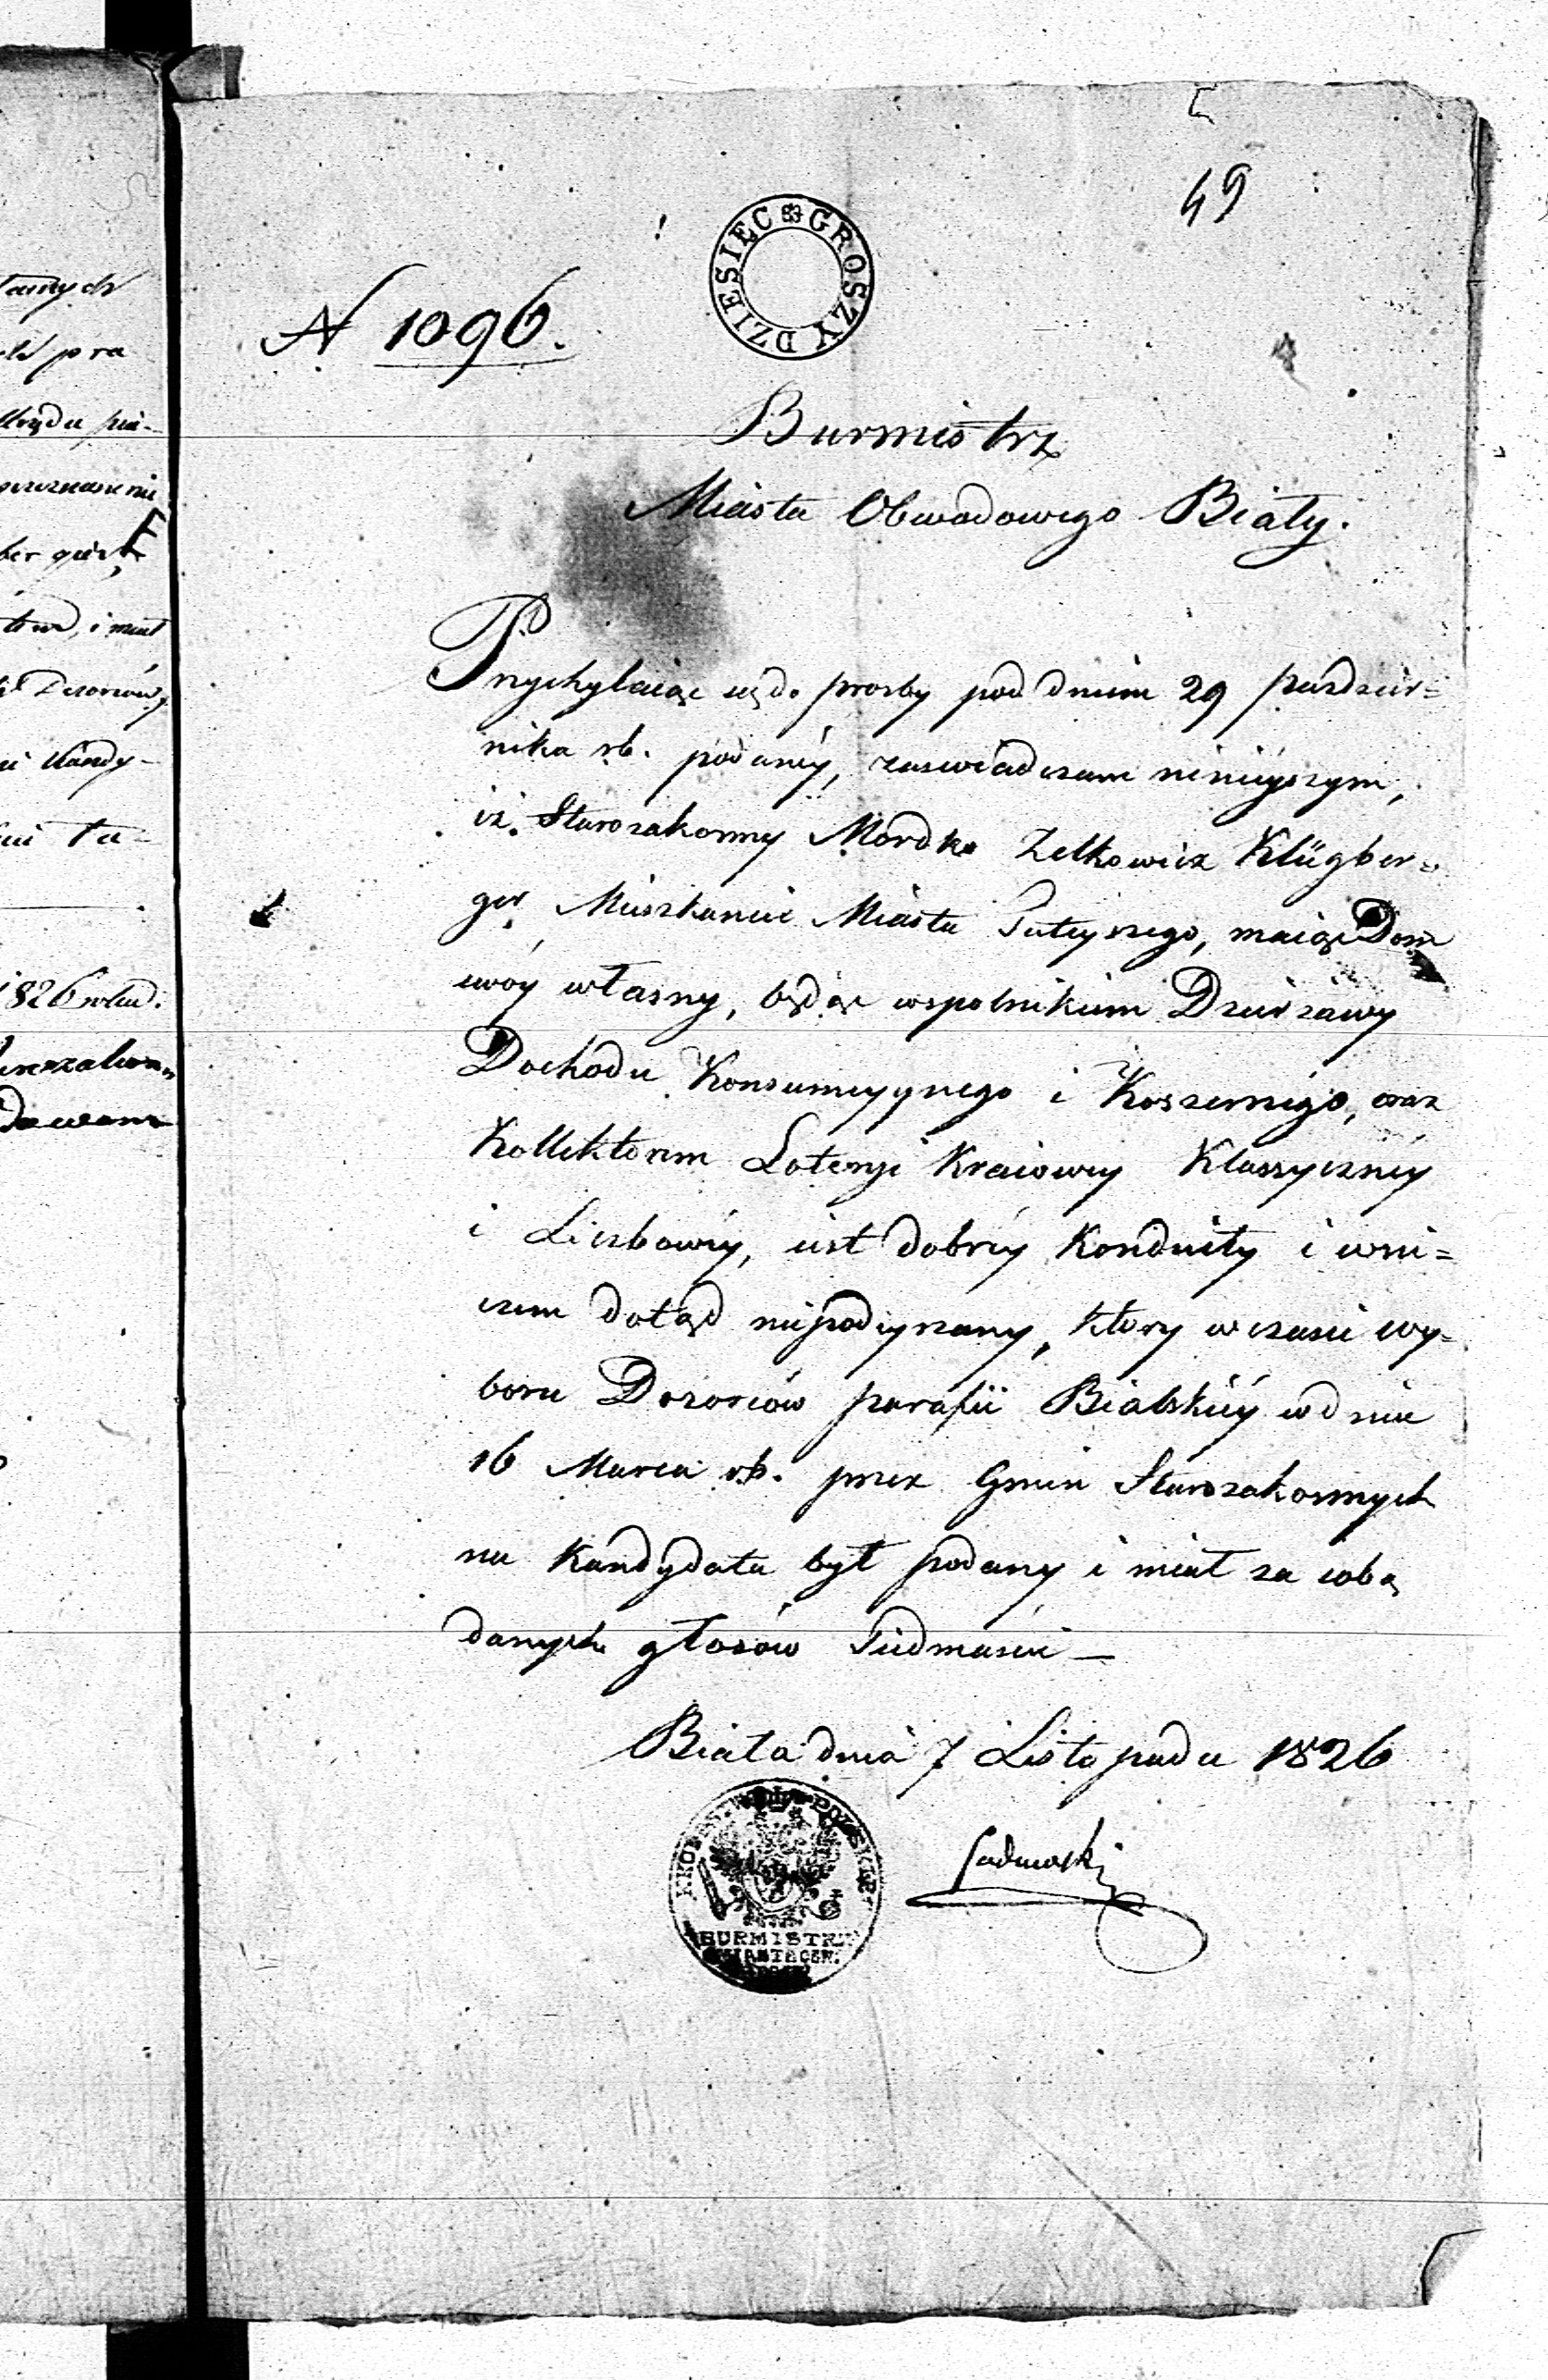 49
GROSZY DZIESIĘC
N 1096.
Burmistrz
Miasta Obwodowego Biały.
Przychylaiąc się do prosby pod dniem 29 Pazdzier=
nika rb. podanéy, zaswiadczam ninieyszym,
iż Starozakonny Mordko Zelkowicz Klügber=
ger Mieszkaniec Miasta Tuteyszego, maiąc Dom
swoy własny, będąc wspolnikiem Dzierzawy
Dochodu Konsumcyynego i Koszernégo, oraz
Kollektorem Loteryi Kraiowey Klassycznéy
i Liczbowéy, iest dobréy Konduity i wni=
czem dotąd niepodeyrzany, ktory w czasie wy=
boru Dozorców parafii Bialskiéy w dniu
16 Marca rb. przez Gmin Starozakonnych
na Kandydata był podany i miał za sobą
danych głosów Siedmnascie —
Biała dnia 7 Listopada 1826
Sadowski
BURMISTRZ
tanych
pra
Dozorców
Kandy-
ta-
1826